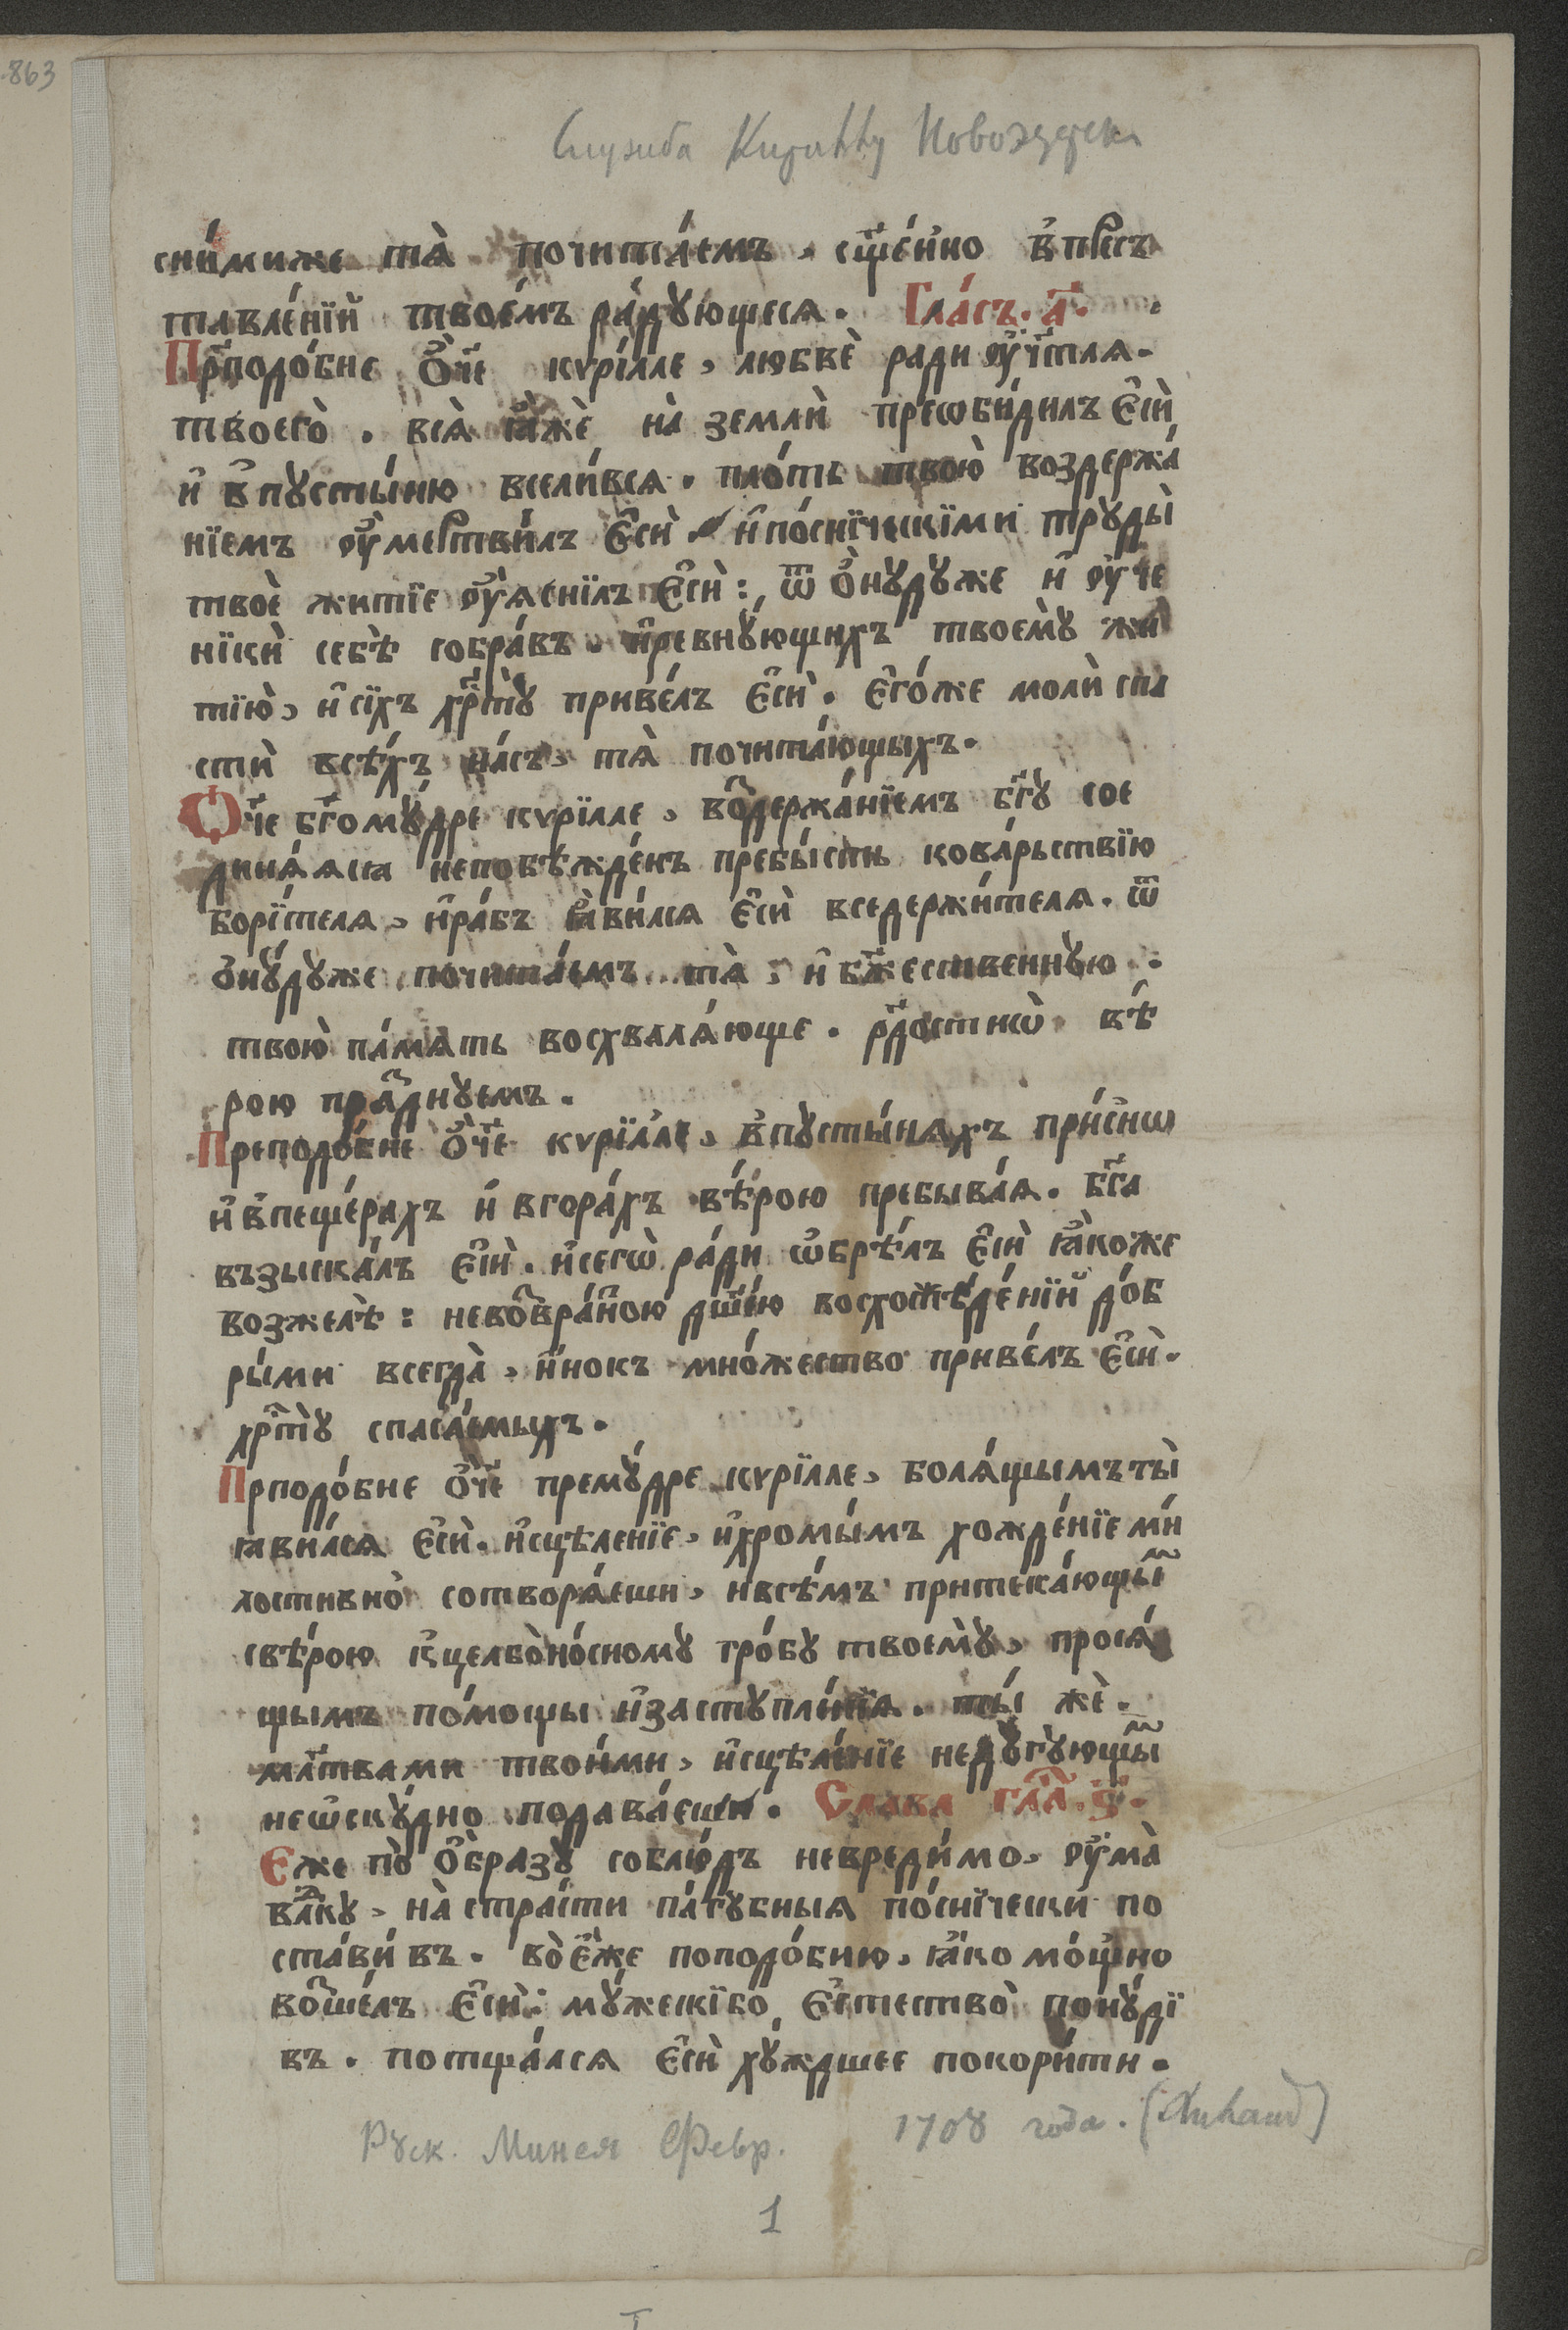 863
Служба Кириллу Новоезерск.
сни́миже тѧ̀ почита́емъ, сщ҃е́нно в̾прес
тавле́нїи твое́мъ ра́дꙋющесѧ. Гла́съ. а҃.
Прⷭ҇подо́бне ѻ҆́ч҃е кѵрі́лле, любвѐ ради ᲂу҆чт҃лѧ.
твоегѡ̀. всѧ̀ ꙗ҆̀жѐ на̀ землѝ преѡби́дилъ є҆сѝ
и҆ в̾пꙋсты́ню всели́всѧ. пло́ть твою̀ воздержа́
нїемъ ᲂу҆мертви́лъ є҆сѝ. и҆по́сническїми трꙋды̀
твоѐ житїе ᲂу҆ѧсни́лъ є҆сѝ: ѿ ѻ҆нꙋ́дꙋже и҆ ᲂу҆че
нїкѝ себѣ̀ собра́въ. и҆ревнꙋ́ющихъ твоемꙋ̀ жи
тїю̀, и҆сїхъ хрⷭ҇тꙋ̀ приве́лъ є҆сѝ. є҆го́же молѝ спа
стѝ всѣ́хъ на́съ, тѧ̀ почита́ющыхъ.
Ѻ҆́ч҃е бг҃омꙋ́дре кѵрїлле, воⷥдержа́нїемъ бг҃ꙋ сое
динѧ́ѧсѧ непобѣжде́нъ пребы́сть кова́рьствїю
борїтелѧ, и҆ра́бъ ꙗ҆ви́лсѧ є҆сѝ вседержи́телѧ. ѿ
ѻ҆нꙋ́дꙋже почита́емъ тѧ̀, и҆ бж҃ественнꙋю.
твою̀ па́мѧть восхвалѧ́юще. рⷣа́достнѡ вѣ́
рою праⷥднꙋемъ.
Преподо́бне ѻ҆́ч҃е кѵрїлле, в̾пꙋсты́нѧхъ при́снѡ
и҆в̾пеще́рахъ и҆ вгора́хъ вѣ́рою пребыва́ѧ. бг҃а
възыска́лъ є҆сѝ. и҆сегѡ̀ ра́ди ѡ҆брѣ́лъ є҆сѝ ꙗ҆́коже
возжелѣ: невоⷥвра́тною дш҃е́ю восхожде́нїи доб
ры́ми всегда̀, и҆́нокъ мно́жество приве́лъ є҆сѝ.
хрⷭ҇тꙋ̀ спаса́емыхъ.
Прподо́бне ѻ҆́ч҃е премꙋ́дре кѵрїлле, болѧ́щымъ ты̀
ꙗви́лсѧ є҆сѝ. и҆сцѣленїе, и҆хромы́мъ хожде́нїе ми
лостивно̀ сотворѧ́еши, ивсѣ́мъ притека́ющыⷨ
свѣ́рою к̾целбоно́сномꙋ гро́бꙋ твоемꙋ̀, просѧ́
щымъ по́мощы и҆застꙋпле́нїѧ. ты́ жѐ.
млⷭ҇твами твои́ми, и҆сцѣле́нїе недꙋ́гꙋющыⷨ
неѡскꙋ́дно подава́еши. Слава глаⷭ҇. ѕ҃.
Єже по̀ ѻ҆́бразꙋ соблю́дъ невреди́мо, ᲂу҆ма̀
влⷣкꙋ, на̀ стра́сти па́гꙋбныѧ по́снїчески по
ста́ви́въ. во̀ є҆́же поподо́бию, ꙗ҆́ко мо́щно
воⷥше́лъ є҆сѝ: мꙋ́жескїбо є҆стество̀ понꙋ́дї
въ. потща́лсѧ є҆сѝ хꙋ́ждшее покори́ти.
Рꙋск. Минея Февр. 1708 года. (Anhand)
1